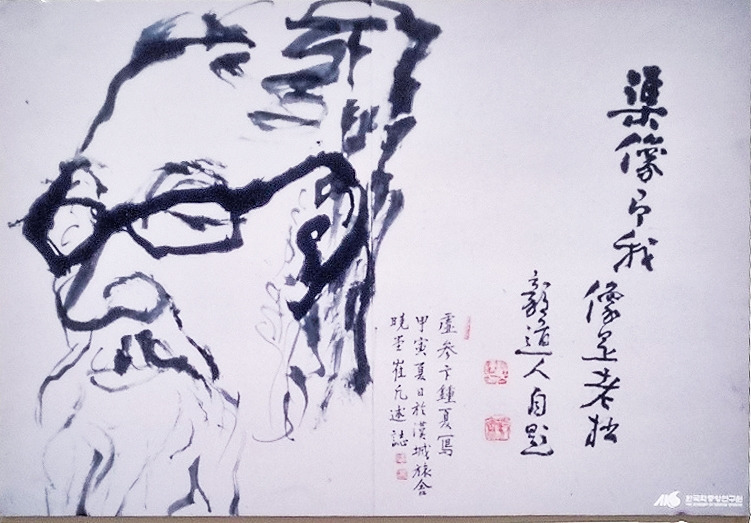 渠像我
像是老
毅道人自題
虛參子鍾夏寫
甲寅夏日於漢城旅舍
曉堂崔凡述誌
AKS 한국학중앙연구원